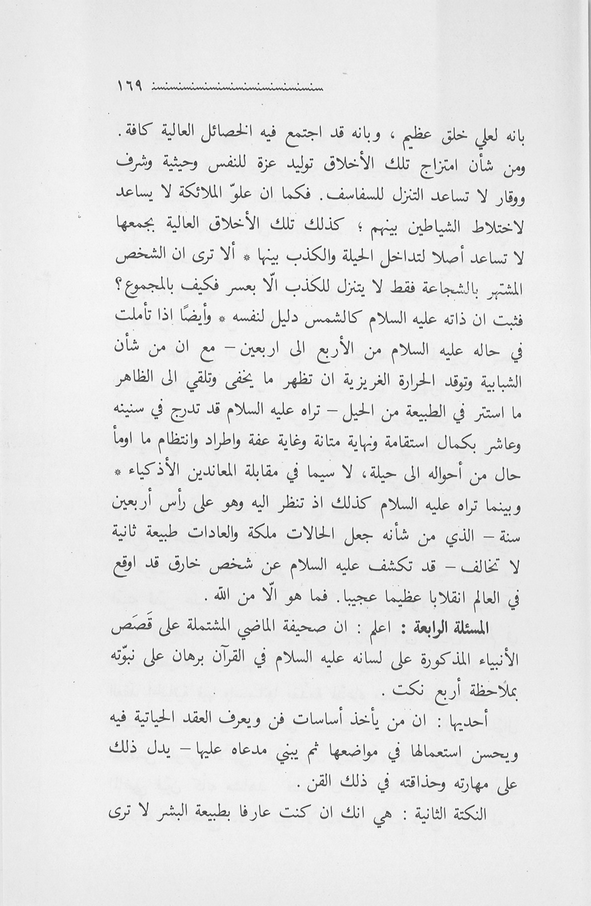 ١٦٩
بانه لعلي خلق عظيم ، وبانه قد اجتمع فيه الخصائل العالية كافة .
ومن شأن امتزاج تلك الأخلاق توليد عزة للنفس وحيثية وشرف
ووقار لا تساعد التنزل للسفاسف . فكما ان علوّ الملائكة لا يساعد
لاختلاط الشياطين بينهم ؛ كذلك تلك الأخلاق العالية بجمعها
لا تساعد أصلا لتداخل الحيلة والكذب بينها * ألا ترى ان الشخص
المشتهر بالشجاعة فقط لا يتنزل للكذب الّا بعسر فكيف بالمجموع؟
فثبت ان ذاته عليه السلام كالشمس دليل لنفسه * وأيضًا اذا تأملت
في حاله عليه السلام من الأربع الى اربعين – مع ان من شأن
الشبابية وتوقد الحرارة الغريزية ان تظهر ما يخفى وتلقي الى الظاهر
ما استتر في الطبيعة من الحيل – تراه عليه السلام قد تدرج في سنينه
وعاشر بكمال استقامة ونهاية متانة وغاية عفة واطراد وانتظام ما اومأ
حال من أحواله الى حيلة، لا سيما في مقابلة المعاندين الأذكياء *
وبينما تراه عليه السلام كذلك اذ تنظر اليه وهو على رأس أربعين
سنة – الذي من شأنه جعل الحالات ملكة والعادات طبيعة ثانية
لا تخالف – قد تكشف عليه السلام عن شخص خارق قد اوقع
في العالم انقلابا عظيما عجيبا. فما هو الّا من الله .
المسئلة الرابعة : اعلم : ان صحيفة الماضي المشتملة على قَصَص
الأنبياء المذكورة على لسانه عليه السلام في القرآن برهان على نبوّته
بملاحظة أربع نكت .
أحديها : ان من يأخذ أساسات فن ويعرف العقد الحياتية فيه
ويحسن استعمالها في مواضعها ثم يبني مدعاه عليها – يدل ذلك
على مهارته وحذاقته في ذلك القن .
النكتة الثانية : هي انك ان كنت عارفا بطبيعة البشر لا ترى